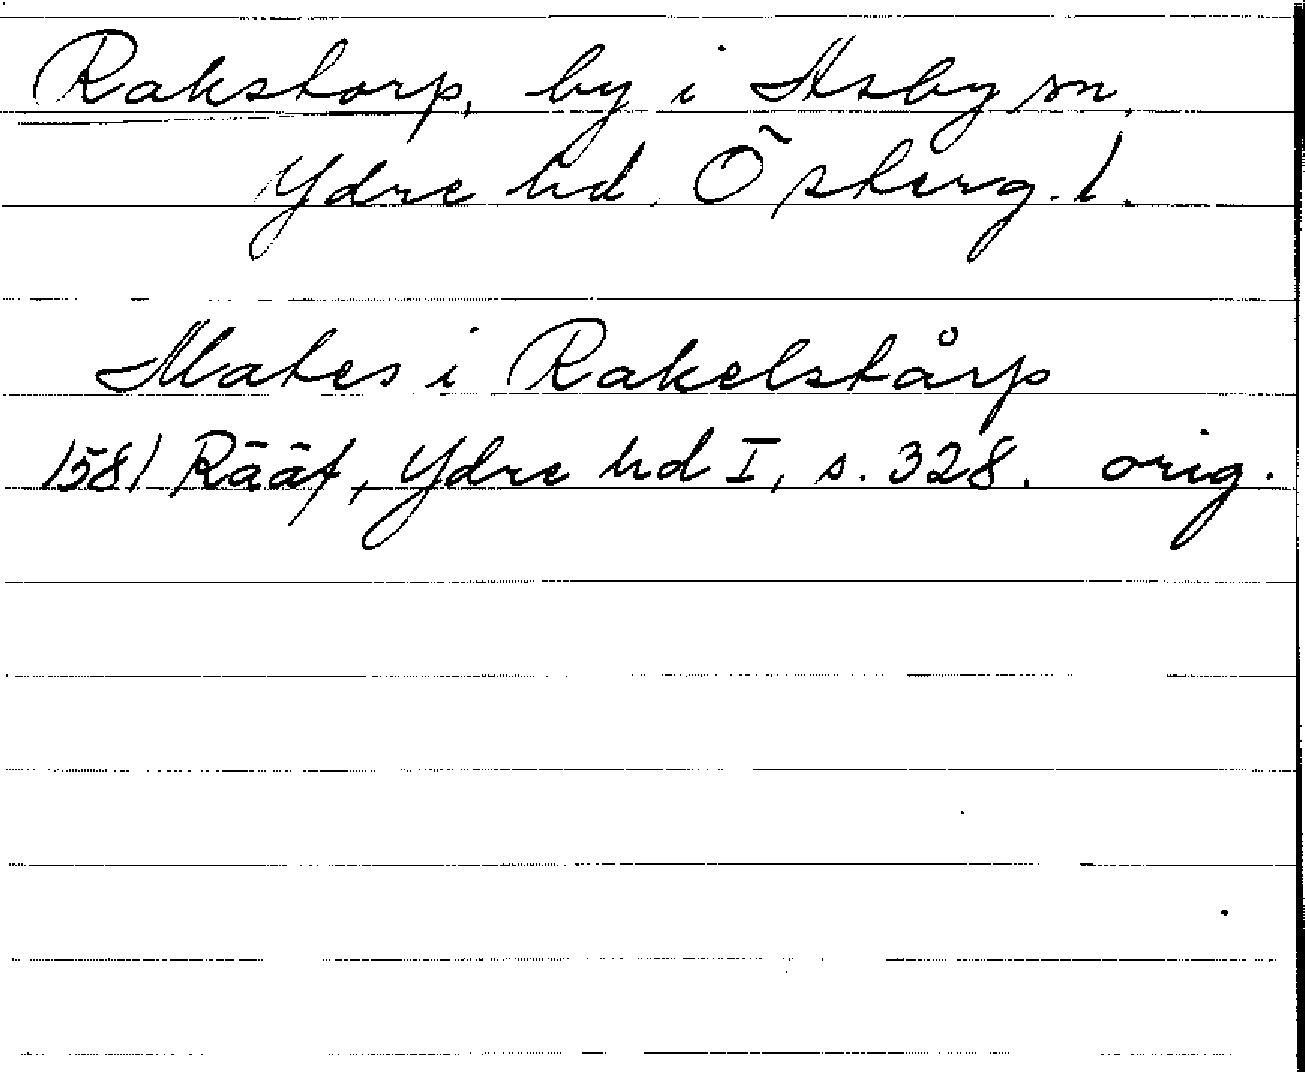 Rakstorp, by i Asby sn.
Ydre hd. Österg. l.
Mates i Rakelstårp
1581 Rääf, Ydre hd I, s. 328. orig.